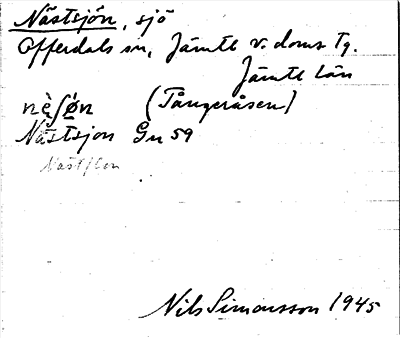 Nästsjön, sjö
Offerdals sn, Jämtl v. doms Tg.
Jämtl län
nèʃø̀n (Tångeråsen)
Nästsjon Gn 59
Nils Simonsson 1945